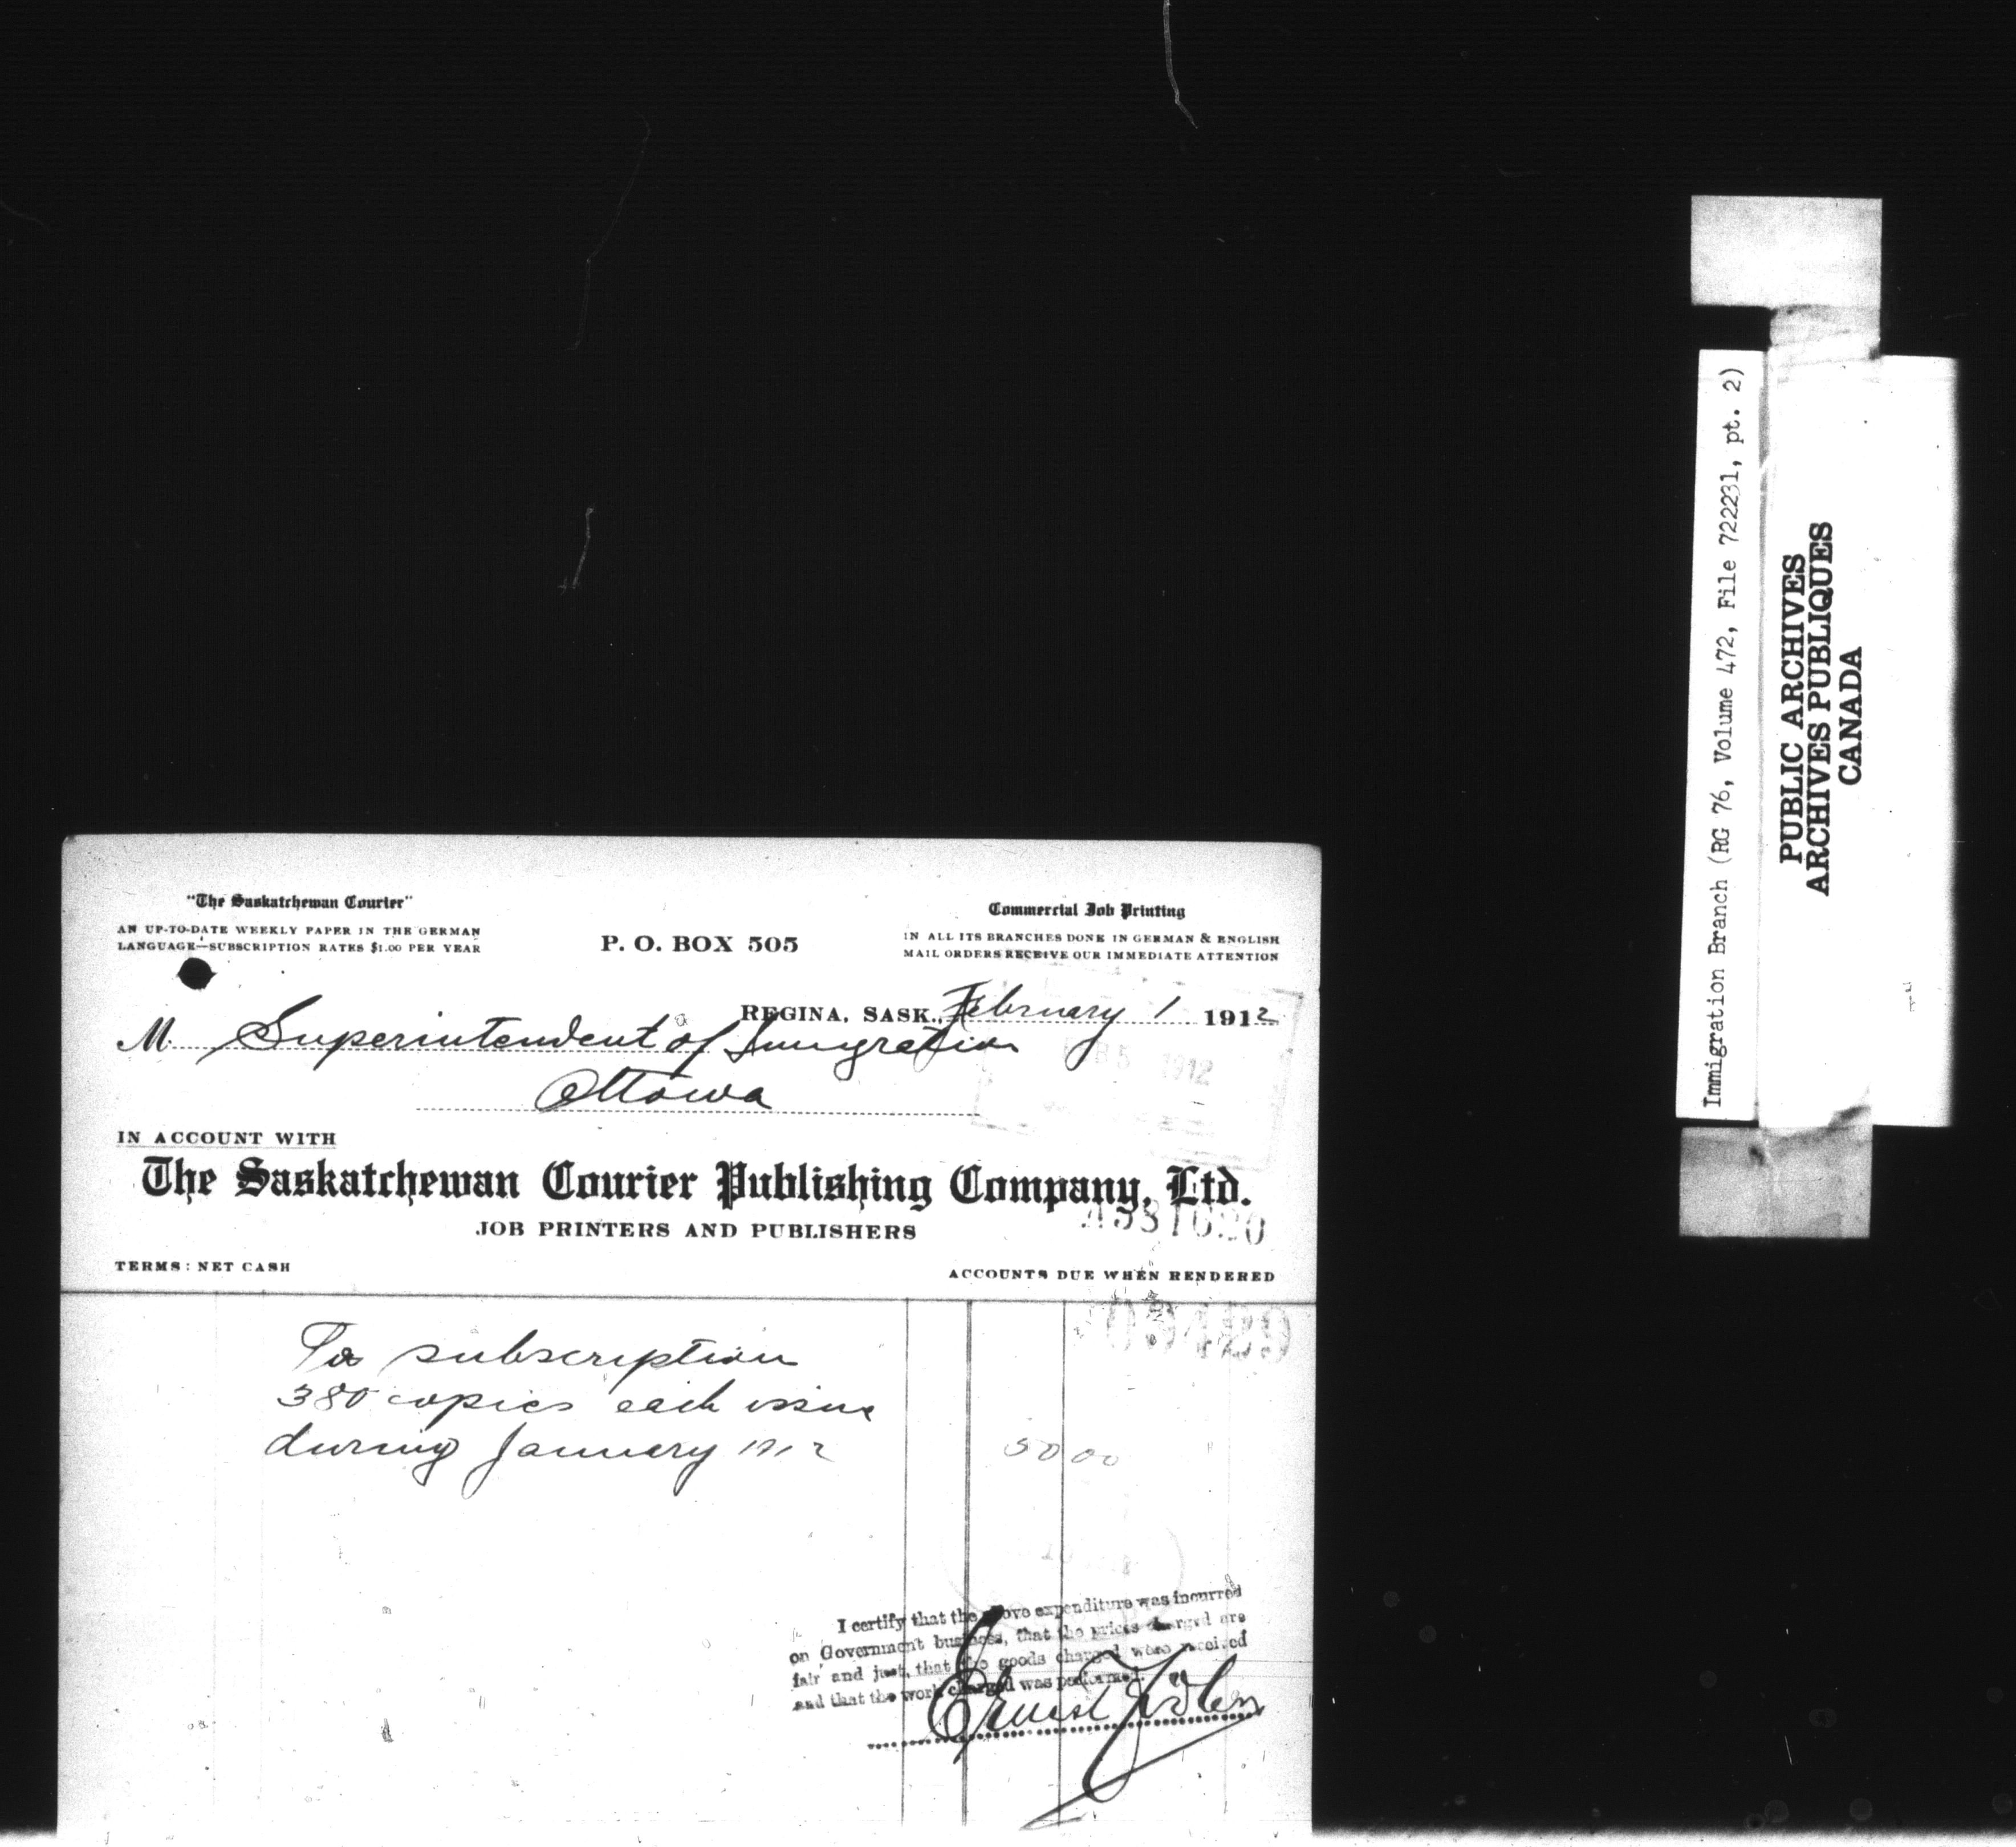 "The Saskatchewan Courier"
AN UP-TO-DATE WEEKLY PAPER IN THE GERMAN
LANGUAGE—SUBSCRIPTION RATES $1.00 PER YEAR
P. O. BOX 505
Commercial Job Printing
IN ALL ITS BRANCHES DONE IN GERMAN & ENGLISH
MAIL ORDERS RECEIVE OUR IMMEDIATE ATTENTION
REGINA, SASK., February 1 1912
M. Superintendent of Immigration
Ottawa
5 1912
IN ACCOUNT WITH
The Saskatchewan Courier Publishing Company, Ltd.
JOB PRINTERS AND PUBLISHERS
TERMS: NET CASH
ACCOUNTS DUE WHEN RENDERED
To subscription
380 copies each issue
during January 1912 50 00
I certify that the above expenditure was incurred
on Government business, that the prices charged are
fair and just, that the goods charged were received
and that the work charged was performed.
Ernest
Immigration Branch (RG 76, Volume 472, File 722231, pt. 2)
PUBLIC ARCHIVES
ARCHIVES PUBLIQUES
CANADA